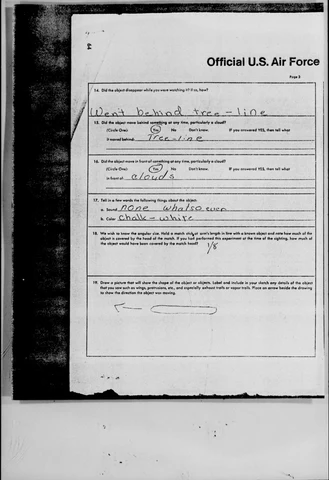 Official U.S. Air Force
Page 3
14. Did the object disappear while you were watching it? If so, how?
Went behind tree-line
15. Did the object move behind something at any time, particularly a cloud?
(Circle One) Yes No Don't know. If you answered YES, then tell what
it moved behind: Tree-line
16. Did the object move in front of something at any time, particularly a cloud?
(Circle One) Yes No Don't know. If you answered YES, then tell what
in front of: clouds
17. Tell in a few words the following things about the object:
a. Sound none whatsoever
b. Color chalk-white
18. We wish to know the angular size. Hold a match stick at arm's length in line with a known object and note how much of the
object is covered by the head of the match. If you had performed this experiment at the time of the sighting, how much of
the object would have been covered by the match head? 1/8
19. Draw a picture that will show the shape of the object or objects. Label and include in your sketch any details of the object
that you saw such as wings, protrusions, etc., and especially exhaust trails or vapor trails. Place an arrow beside the drawing
to show the direction the object was moving.